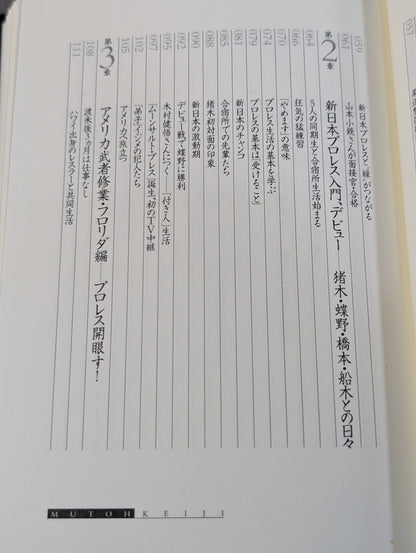 057
第2章
新日本プロレス入門、デビュー……猪木・蝶野・橋本・船木との日々
059
新日本プロレスと「縁」がつながる
061
山本小鉄さんが面接官・合格
064
5人の同期生と合宿所生活始まる
066
狂気の猛練習
070
「やめます」の意味
074
プロレス生活の基本を学ぶ
079
プロレスの基本は「受けること」
081
新日本のチャンコ
085
合宿所での先輩たち
088
猪木初対面の印象
090
新日本の激動期
092
デビュー戦、蝶野に勝利
095
木村健悟さんにつく「付き人」生活
097
「ムーンサルト・プレス」誕生、初のTV中継
102
「弟子イジメ」の犯人たち
105
アメリカへ旅立つ
第3章
アメリカ武者修業・フロリダ編……プロレス開眼す!
108
渡米後3ヵ月は仕事なし
111
ハワイ出身のレスラーと共同生活
MUTOH KEIJI